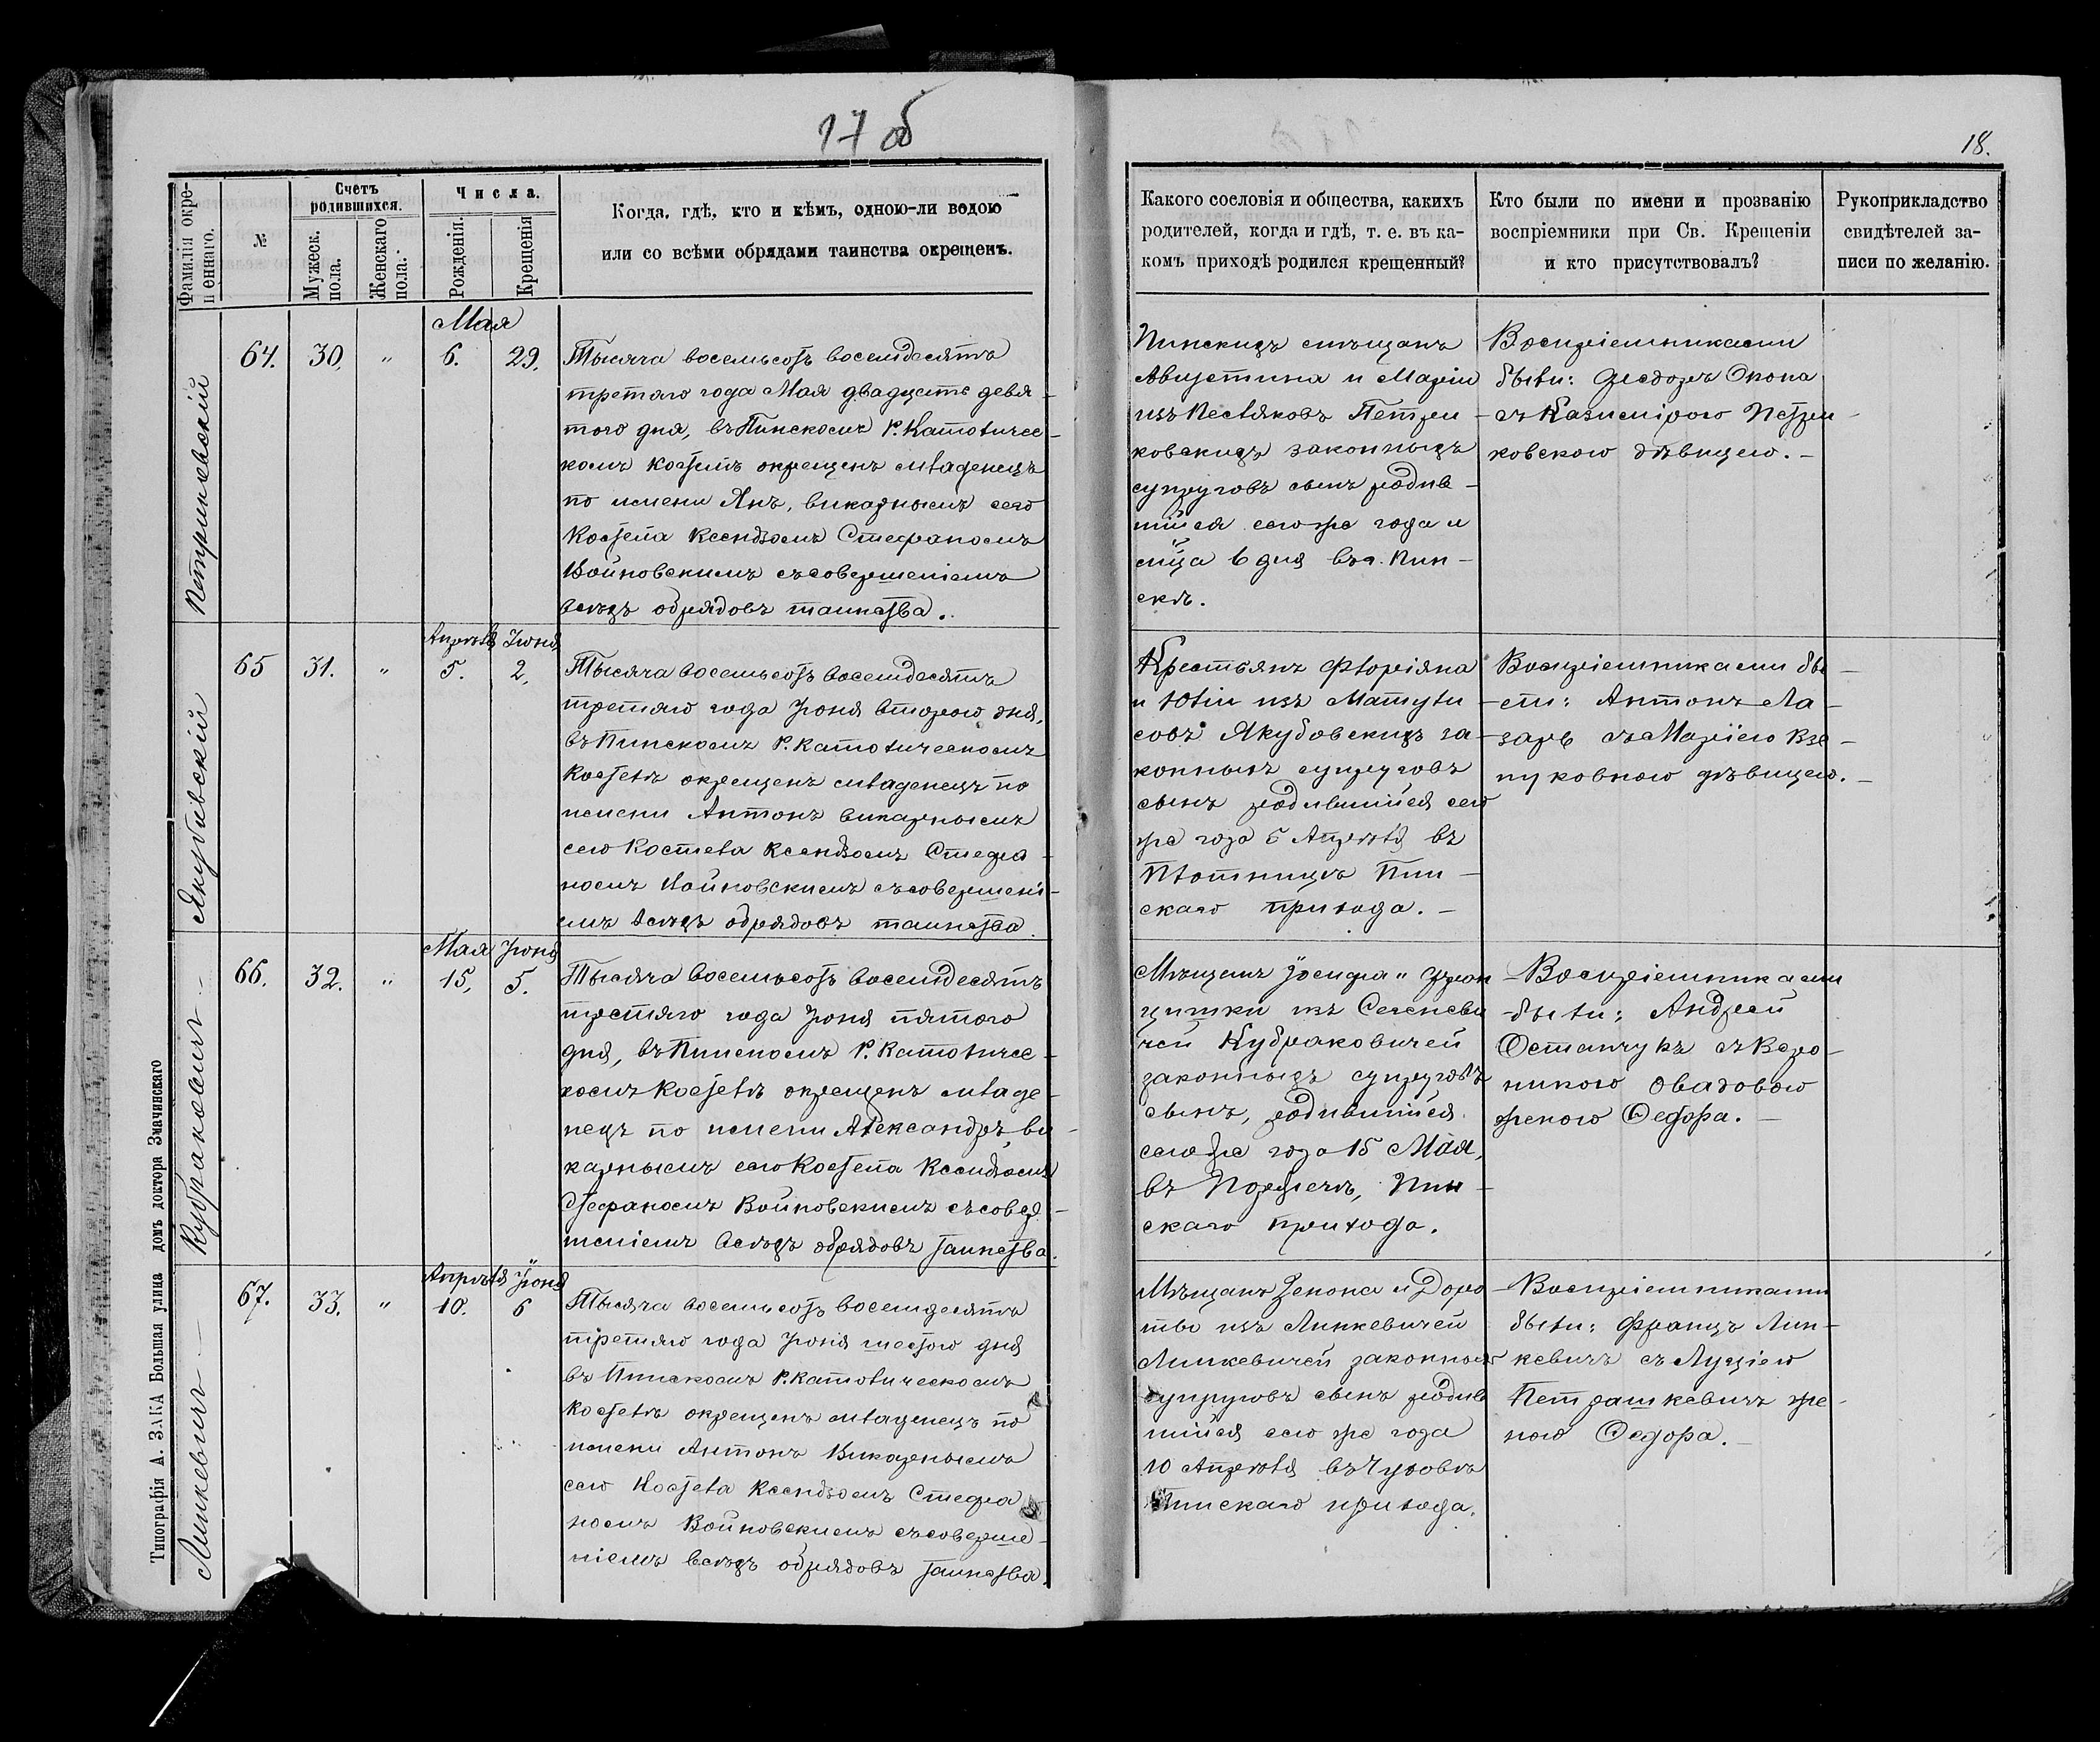 17 об
18.
Фамилія окре-
щеннаго.
№
Счетъ
родившихся.
Мужеск.
пола.
Женскаго
пола.
Числа.
Рожденія.
Крещенія
Когда, гдѣ, кто и кѣмъ, одною-ли водою
или со всѣми обрядами таинства окрещенъ.
Какого сословія и общества, какихъ
родителей, когда и гдѣ, т. е. въ ка-
комъ приходѣ родился крещенный?
Кто были по имени и прозванію
воспріемники при Св. Крещеніи
и кто присутствовалъ?
Рукоприкладство
свидѣтелей за-
писи по желанію.
Петриковскій
64. 30. " Мая 6. 29.
Тысяча восемьсотъ восемдесятъ
третяго года Мая двадцать девя-
того дня, въ Пинскомъ Р. Католичес-
комъ костелѣ окрещенъ младенецъ
по имени Янъ, викарнымъ сего
Костела Ксендзомъ Стефаномъ
Войновскимъ съ совершеніемъ
всѣхъ обрядовъ таинства.
Пинскихъ мѣщанъ
Августина и Маріи
изъ Пестяковъ Петри-
ковскихъ законныхъ
супруговъ сынъ родив-
шійся сего же года и
м̃ца 6 дня въ г. Пин-
скѣ.
Воспріемниками
были: Феодоръ Окопа
съ Казимірою Петри-
ковскою дѣвицею. -
Якубовскій
65 31. " Апрѣля 5. Іюня 2.
Тысяча восемьсотъ восемдесятъ
третяго года Іюня второго дня,
въ Пинскомъ Р. Католическомъ
Костелѣ окрещенъ младенецъ по
имени Антонъ викарнымъ
сего Костела Ксендзомъ Стефа-
номъ Войновскимъ съ совершені-
емъ всѣхъ обрядовъ таинства.
Крестьянъ Флоріяна
и Юліи изъ Матули-
совъ Якубовскихъ за-
конныхъ супруговъ
сынъ родившійся сего
же года 5 Апрѣля въ
Плотницѣ Пин-
скаго прихода. -
Воспріемниками бы-
ли: Антонъ Ла-
зарь съ Маріею
дѣвицею. -
Кубраковичъ -
66. 32. " Мая 15, Іюня 5.
Тысяча восемьсотъ восемдесятъ
третяго года Іюня пятого
дня, въ Пинскомъ Р. Католичес-
комъ Костелѣ окрещенъ младе-
нецъ по имени Александръ, ви-
карнымъ сего Костела Ксендзомъ
Стефаномъ Войновскимъ съ совер-
шеніемъ всѣхъ обрядовъ таинства.
Мѣщанъ Іосифа и Фран-
цишки изъ
Кубраковичей
законныхъ супруговъ
сынъ, родившійся
сего же года 15 Мая,
въ Порѣчьѣ, Пин-
скаго прихода.
Воспріемниками
были: Андрей
Останчукъ съ Веро-
никою
женою Федора. -
Линкевичъ -
67. 33. " Апрѣля 10. Іюня 6
Тысяча восемьсотъ восемдесятъ
третяго года Іюня шестого дня
въ Пинскомъ Р. Католическомъ
Костелѣ окрещенъ младенецъ по
имени Антонъ Викарнымъ
сего Костела Ксендзомъ Стефа
номъ Войновскимъ съ соверше-
ніемъ всѣхъ обрядовъ таинства.
Мѣщанъ Зенона и Доро-
ты изъ Линкевичей
Линкевичей законныхъ
супруговъ сынъ родив
шійся сего же года
10 Апрѣля въ
Пинскаго прихода.
Воспріемниками
были: Францъ Лин-
кевичъ съ Луціею
Петрашкевичъ же-
ною Федора. -
Типографія А. ЗАКА Большая улица домъ доктора Змачинскаго